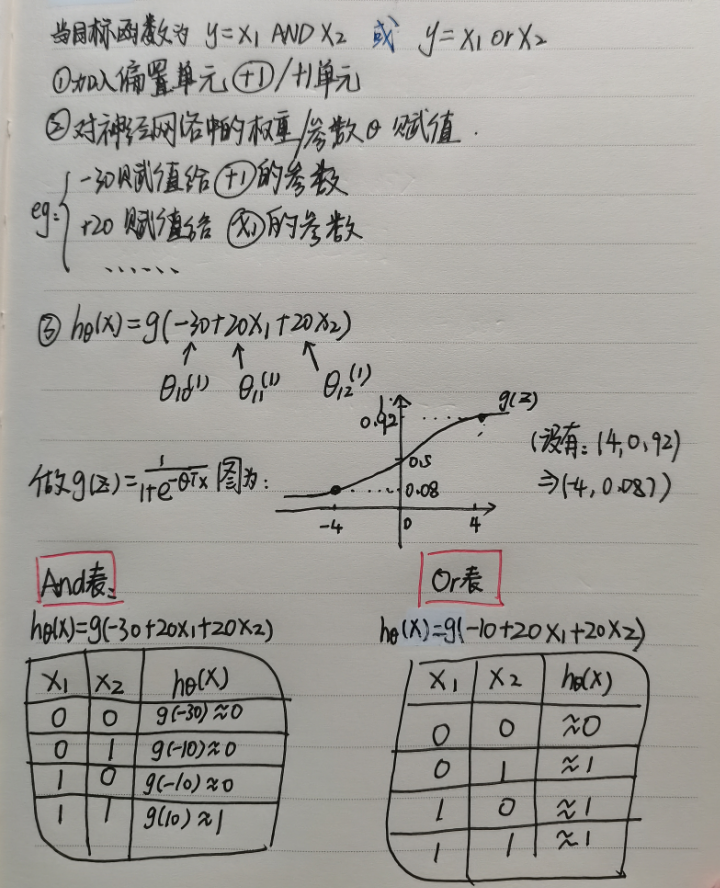 当目标函数为 y=x₁ AND x₂ 或 y=x₁ or x₂
①加入偏置单元 (+1)/+1单元
②对神经网络中的权重/参数θ 赋值.
eg: { -30赋值给 (+1) 的参数
+20 赋值给 (x₁) 的参数
......
③ hθ(x)=g(-30+20x₁+20x₂)
↑ ↑ ↑
θ₁₀⁽¹⁾ θ₁₁⁽¹⁾ θ₁₂⁽¹⁾
0.92 g(z)
0.5
0.08
-4 0 4
(设有: (4,0.92)
⇒(-4, 0.08))
做g(z)=1/(1+e^(-θᵀx)) 图为:
And表:
hθ(x)=g(-30+20x₁+20x₂)
x₁ x₂ hθ(x)
0 0 g(-30)≈0
0 1 g(-10)≈0
1 0 g(-10)≈0
1 1 g(10)≈1
Or表
hθ(x)=g(-10+20x₁+20x₂)
x₁ x₂ hθ(x)
0 0 ≈0
0 1 ≈1
1 0 ≈1
1 1 ≈1